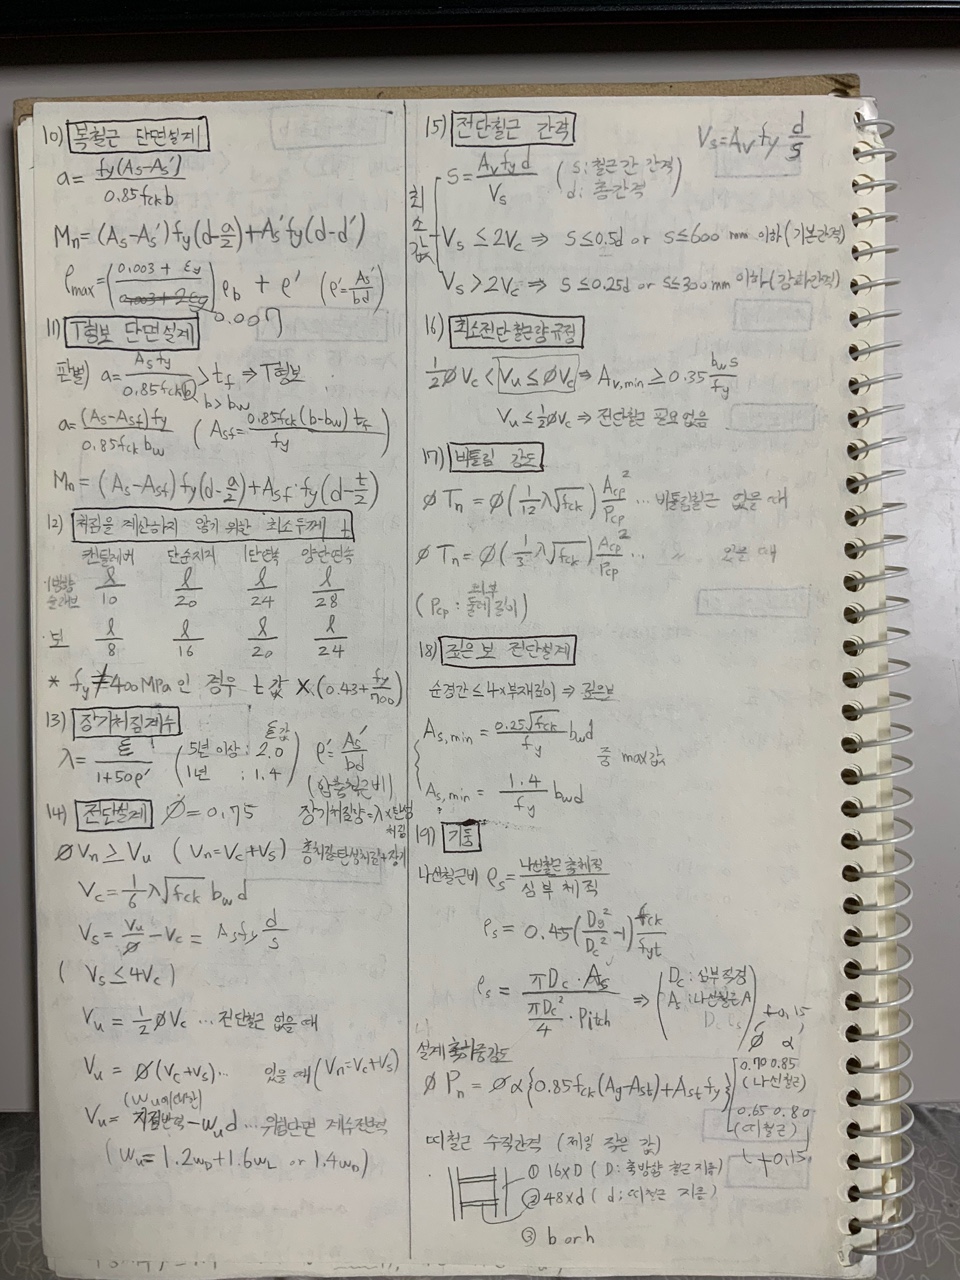 10) 복철근 단면설계
a = fy(As-As') / 0.85fck b
Mn = (As-As')fy(d-a/2)+As'fy(d-d')
ρmax = (0.003 + εy / 0.007) ρb + ρ' (ρ' = As'/bd)
11) T형보 단면설계
판별) a = As fy / 0.85fck b > tf ⇒ T형보
b > bw
a = (As-Asf)fy / 0.85fck bw (Asf = 0.85fck(b-bw)tf / fy)
Mn = (As-Asf)fy(d-a/2)+Asf·fy(d-t/2)
12) 처짐을 계산하지 않기 위한 최소두께 t
캔틸레버 단순지지 1단연속 양단연속
·1방향 슬래브 l/10 l/20 l/24 l/28
·보 l/8 l/16 l/20 l/24
* fy ≠ 400MPa인 경우 t값 × (0.43+fy/700)
13) 장기처짐계수
ξ값
λ = ξ / 1+50ρ' (5년 이상 : 2.0 ρ' = As'/bd
1년 : 1.4) (압축철근비)
장기처짐 = λ × 탄성처짐
14) 전단설계 Ø = 0.75
ØVn ≥ Vu (Vn = Vc+Vs) 총처짐=탄성처짐+장기
Vc = 1/6 λ√fck bw d
Vs = Vu/Ø - Vc = As fy d/s
(Vs ≤ 4Vc)
Vu = 1/2 ØVc ... 전단철근 없을 때
Vu = Ø(Vc+Vs)... 있을 때 (Vn=Vc+Vs)
Vu = 지점반력 - wu d ... 위험단면 계수전단력
(wu = 1.2wD+1.6wL or 1.4wD)
15) 전단철근 간격 Vs = Av fy d/s
최소값
s = Av fy d / Vs (s : 철근간 간격
d : 층간격)
Vs ≤ 2Vc ⇒ s ≤ 0.5d or s ≤ 600 mm 이하(기본간격)
Vs > 2Vc ⇒ s ≤ 0.25d or s ≤ 300mm 이하(강화간격)
16) 최소전단철근량 규정
1/2 ØVc < Vu ≤ ØVc ⇒ Av,min ≥ 0.35 bw s / fy
Vu ≤ 1/2 ØVc ⇒ 전단철근 필요없음
17) 비틀림 강도
Ø Tn = Ø(1/12 λ√fck) Acp²/Pcp ... 비틀림철근 없을 때
Ø Tn = Ø(1/3 λ√fck) Acp²/Pcp ... 〃 있을 때
(Pcp : 외부 둘레길이)
18) 깊은 보 전단설계
순경간 ≤ 4×부재깊이 ⇒ 깊은보
As,min = 0.25√fck / fy bw d
중 max값
As,min = 1.4 / fy bw d
19) 기둥
나선철근비 ρs = 나선철근 총체적 / 심부 체적
ρs = 0.45(Dg²/Dc² - 1) fck/fyt
ρs = πDc·As / (πDc²/4 · Pitch) ⇒ (Dc : 심부직경
As : 나선철근A)
설계 축하중강도 Ø α
Ø Pn = Øα{0.85fck(Ag-Ast)+Ast fy}
0.70 0.85
(나선철근)
0.65 0.80
(띠철근)
t+0.15
띠철근 수직간격 (제일 작은 값)
① 16×D (D : 축방향 철근 지름)
② 48×d (d : 띠철근 지름)
③ b or h